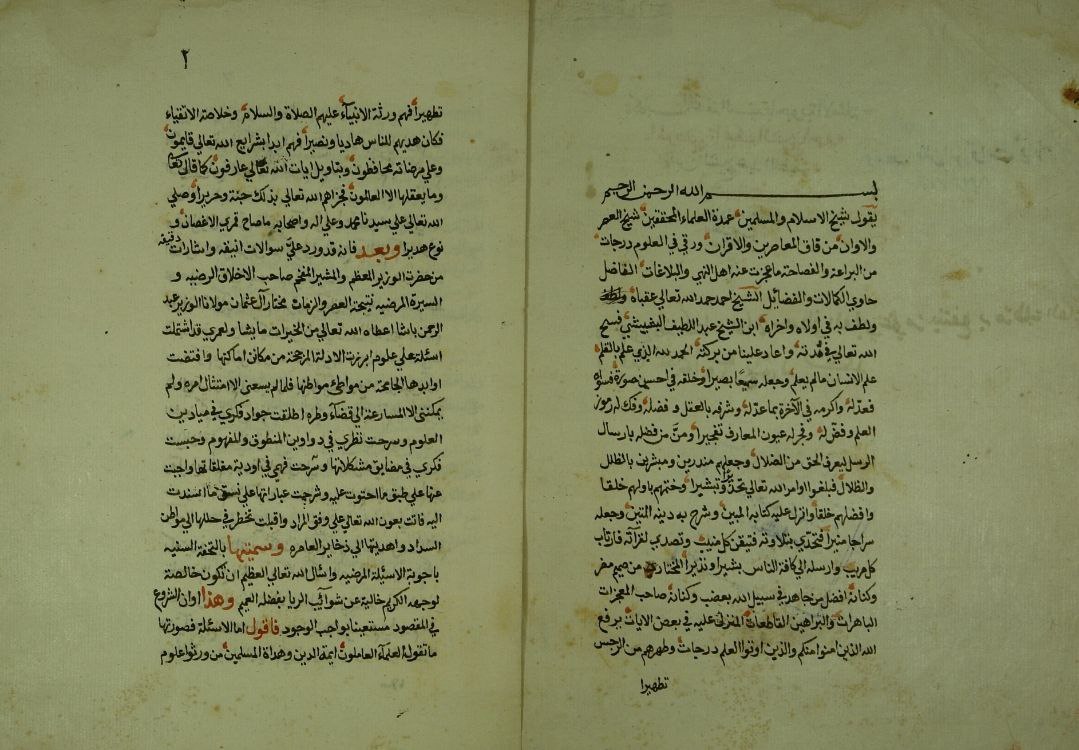 بسم الله الرحمن الرحيم
يقول شيخ الاسلام والمسلمين عمدة العلماء المحققين شيخ العصر
والاوان من فاق المعاصرين والاقران ورقي في العلوم درجات
من البراعة والفصاحة ما عجزت عنه اهل النهي والبلاغات الفاضل
حاوي الكمالات والفضائل الشيخ احمد حمد الله تعالي عقباه
ولطف به في اولاه واخراه ابن الشيخ عبد اللطيف البشبيشي فسح
الله تعالي في مدته واعاد علينا من بركته الحمد لله الذي علم بالقلم
علم الانسان مالم يعلم وجعله سميعا بصيرا وخلقه في احسن صورة فسواه
فعدله واكرمه في الآخرة بما عدله وشرفه بالعقل وفضله وفك له رموز
العلم وفصله وفجر له عيون المعارف تفجيرا ومن من فضله بارسال
الرسل ليعرفي الحق من الضلال وجعلهم منذرين ومبشرين بالظلل
والظلال فبلغوا اوامر الله تعالي تحذيرا وتبشيرا وختمهم باولهم خلقا
وافضلهم خلقا وانزل عليه كتابه المبين وشرح به دينه المتين وجعله
سراجا منيرا فتحدي بتلاوته فتيقن كل منيب وتصدي لقرآته فارتاب
كل مريب وارسله الي كافة الناس بشيرا ونذيرا المختار من صميم مضر
وكنانة افضل من جاهد في سبيل الله بعضب وكنانه صاحب المعجزات
الباهرات والبراهين القاطعات المنزل عليه في بعض الايات يرفع
الله الذين امنوا منكم والذين اوتوا العلم درجات وطهرهم من الرجس
تطهيرا
٢
تطهيرا فهم ورثة الانبيآء عليهم الصلاة والسلام وخلاصة الاتقياء
فكان هديهم للناس هاديا ونصيرا فهم ابدا بشرايع الله تعالي قايمون
وعلي مرضاته محافظون وبتاويل ايات الله تعالي عارفون كما قال تعالي
وما يعقلها الا العالمون فجزاهم الله تعالي بذلك جنة وحريرا وصلي
الله تعالي علي سيدنا محمد وعلي اله واصحابه ما صاح قمري الاغصان و
نوع هديرا وبعد فانه قد ورد علي سوالات انيقه واشارات دقيقه
من حضرت الوزير المعظم والمشير المفخم صاحب الاخلاق الرضيه و
السيرة المرضيه نتيجة العصر والزمان مختار آل عثمان مولانا الوزير عبد
الرحمن باشا اعطاه الله تعالي من الخيرات ما يشا ولعمري قد اشتملت
اسئلة علي علوم ابرزت الادلة المرجحة من مكامن اماكنها واقتضت
اوابدها الجامحة من مواطئ مواطنها فلما لم يسعني الا امتثال امره ولم
يمكنني الا المسارعة الي قضآء وطره اطلقت جواد فكري في ميادين
العلوم وسرحت نظري في دواوين المنطوق والمفهوم وحبست
فكري في مضايق مشكلاتها وسرحت فهمي في اودية مغلقاتها واجبت
عنها علي طبق ما احتوت عليه وشرحت عباراتها علي نسق ما اسندت
اليه فاتت بعون الله تعالي علي وفق المراد واقبلت تخطر في حللها الي مواطن
السداد واهديتها الي ذخاير العامره وسميتها بالتحفة السنيه
باجوبة الاسئلة المرضيه واسئال الله تعالي العظيم ان تكون خالصة
لوجهه الكريم خالية عن شوائيب الريا بفضله العميم وهذا اوان الشروع
في المقصود مستعينا بواجب الوجود فاقول اما الاسئلة فصورتها
ما تقول العلمآء العاملون ايمة الدين وهداة المسلمين من ورثوا علوم